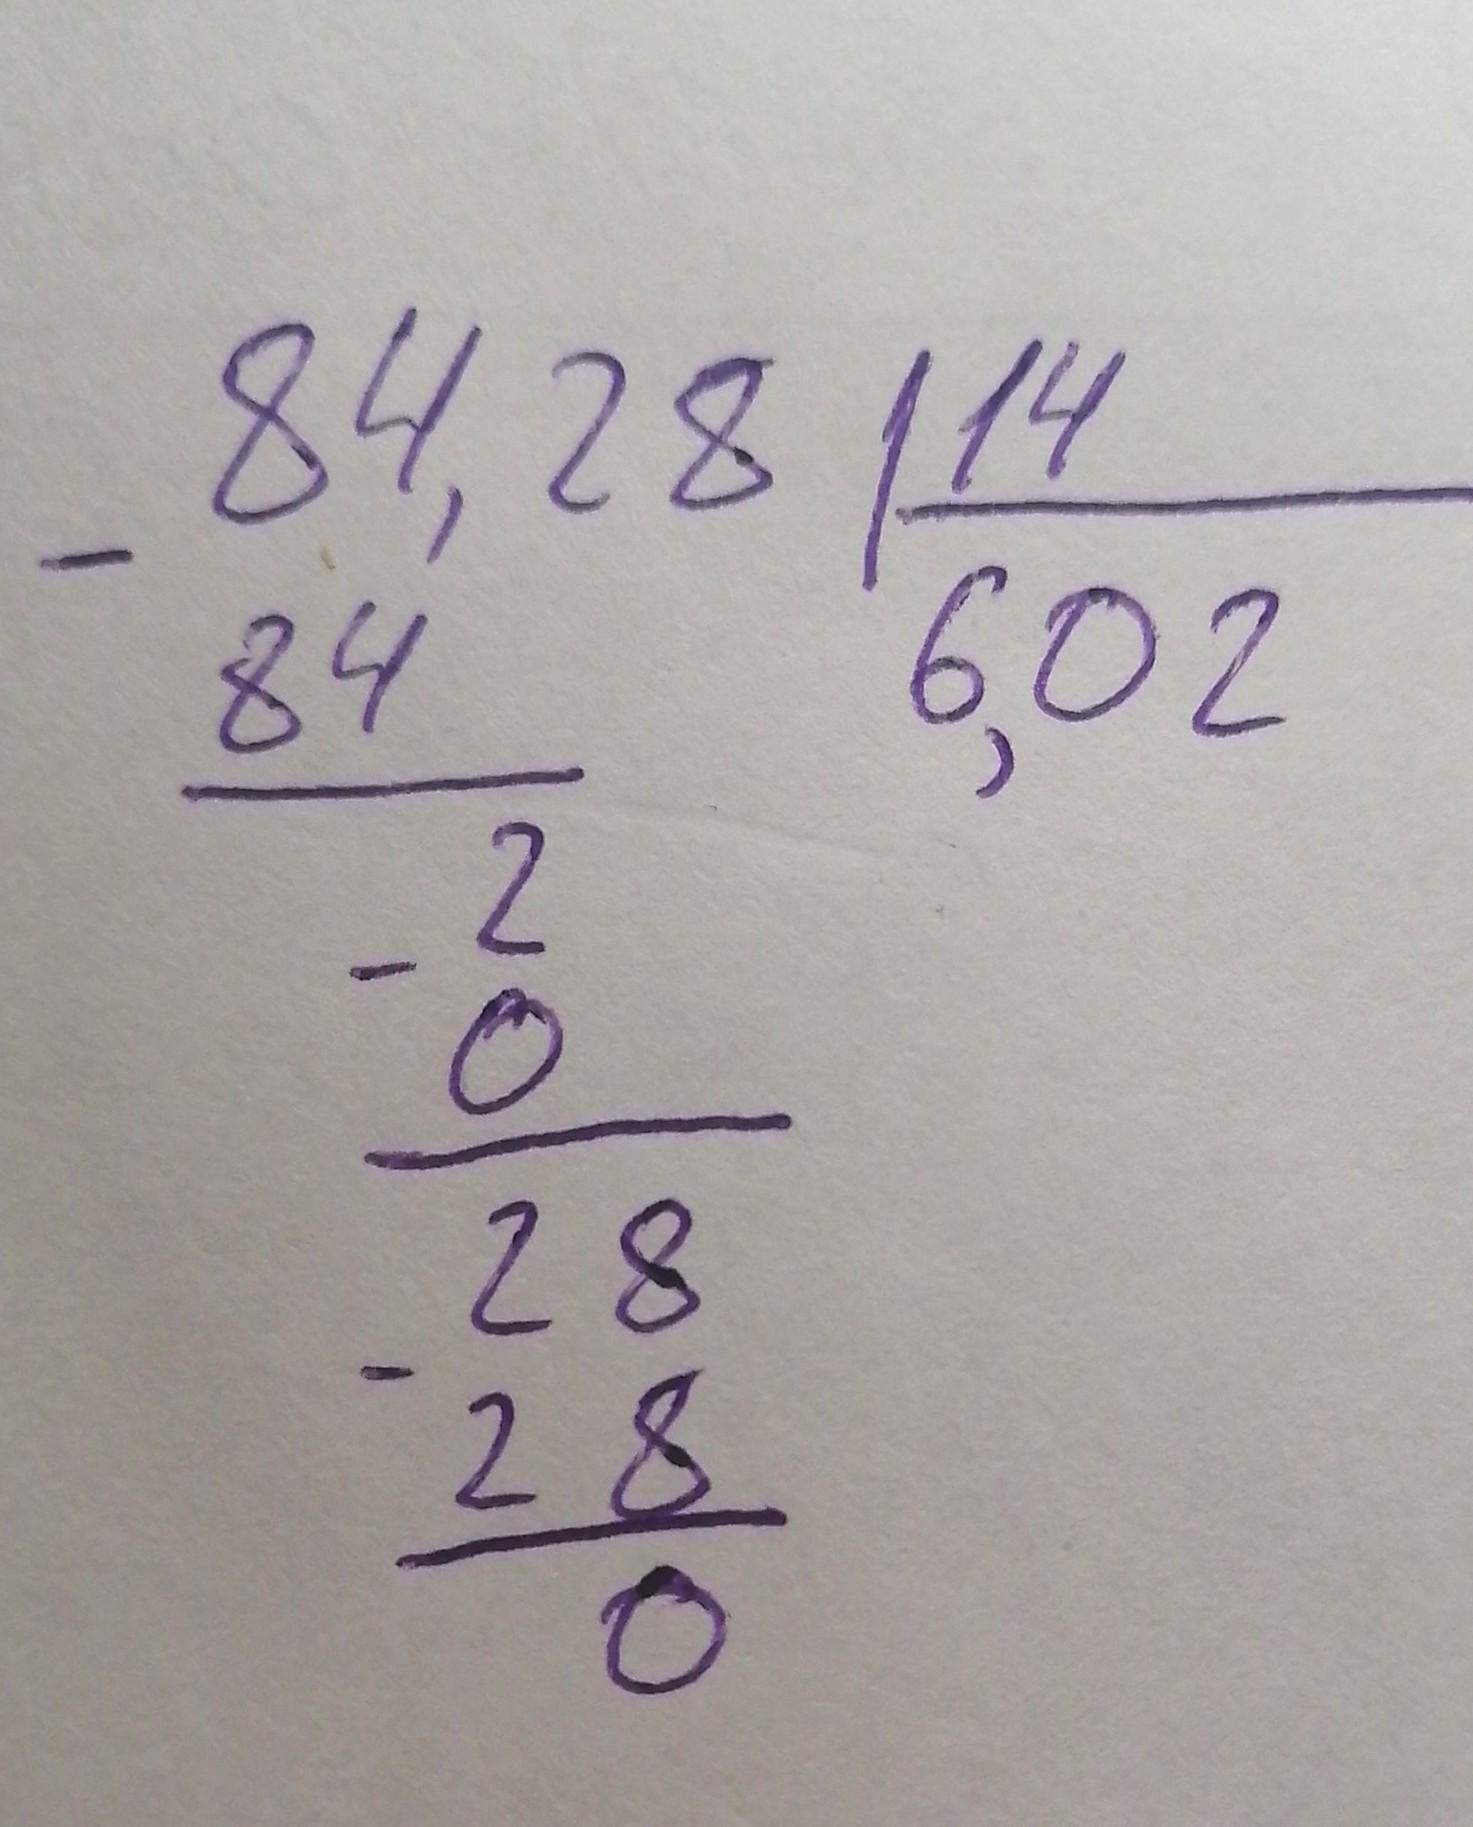 84,28 14
- 6,02
84
2
-
0
28
-
28
0